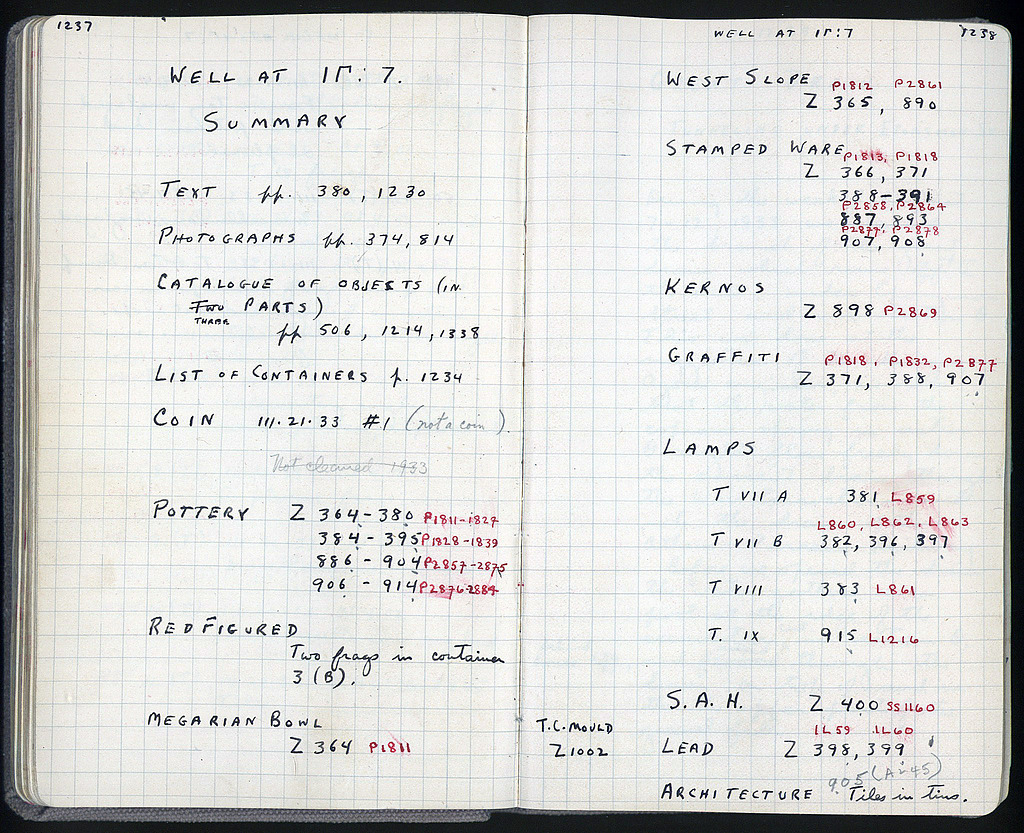 1237
WELL AT ΙΓ: 7.
SUMMARY
TEXT pp. 380, 1230
PHOTOGRAPHS pp. 374, 814
CATALOGUE OF OBJECTS (IN
TWO PARTS)
THREE
pp 506, 1214, 1338
LIST OF CONTAINERS p. 1234
COIN 111.21.33 #1 (not a coin).
Not cleaned 1933
POTTERY Z 364-380 P1811-1827
384-395 P1828-1839
886-904 P2857-2875
906-914 P2876-2884
RED FIGURED
Two frags in container
3 (B).
MEGARIAN BOWL
Z 364 P1811
WELL AT ΙΓ:7
1238
WEST SLOPE P1812 P2861
Z 365, 890
STAMPED WARE P1813, P1818
Z 366, 371
388-391
P2858, P2864
887, 893
P2877, P2878
907, 908
KERNOS
Z 898 P2869
GRAFFITI P1818, P1832, P2877
Z 371, 388, 907
LAMPS
T VII A 381 L859
L860, L862, L863
T VII B 382, 396, 397
T VIII 383 L861
T. IX 915 L1216
S.A.H. Z 400 SS1160
T.C. MOULD
Z1002
IL59 IL60
LEAD Z 398, 399
905 (A245)
ARCHITECTURE Tiles in Tins.